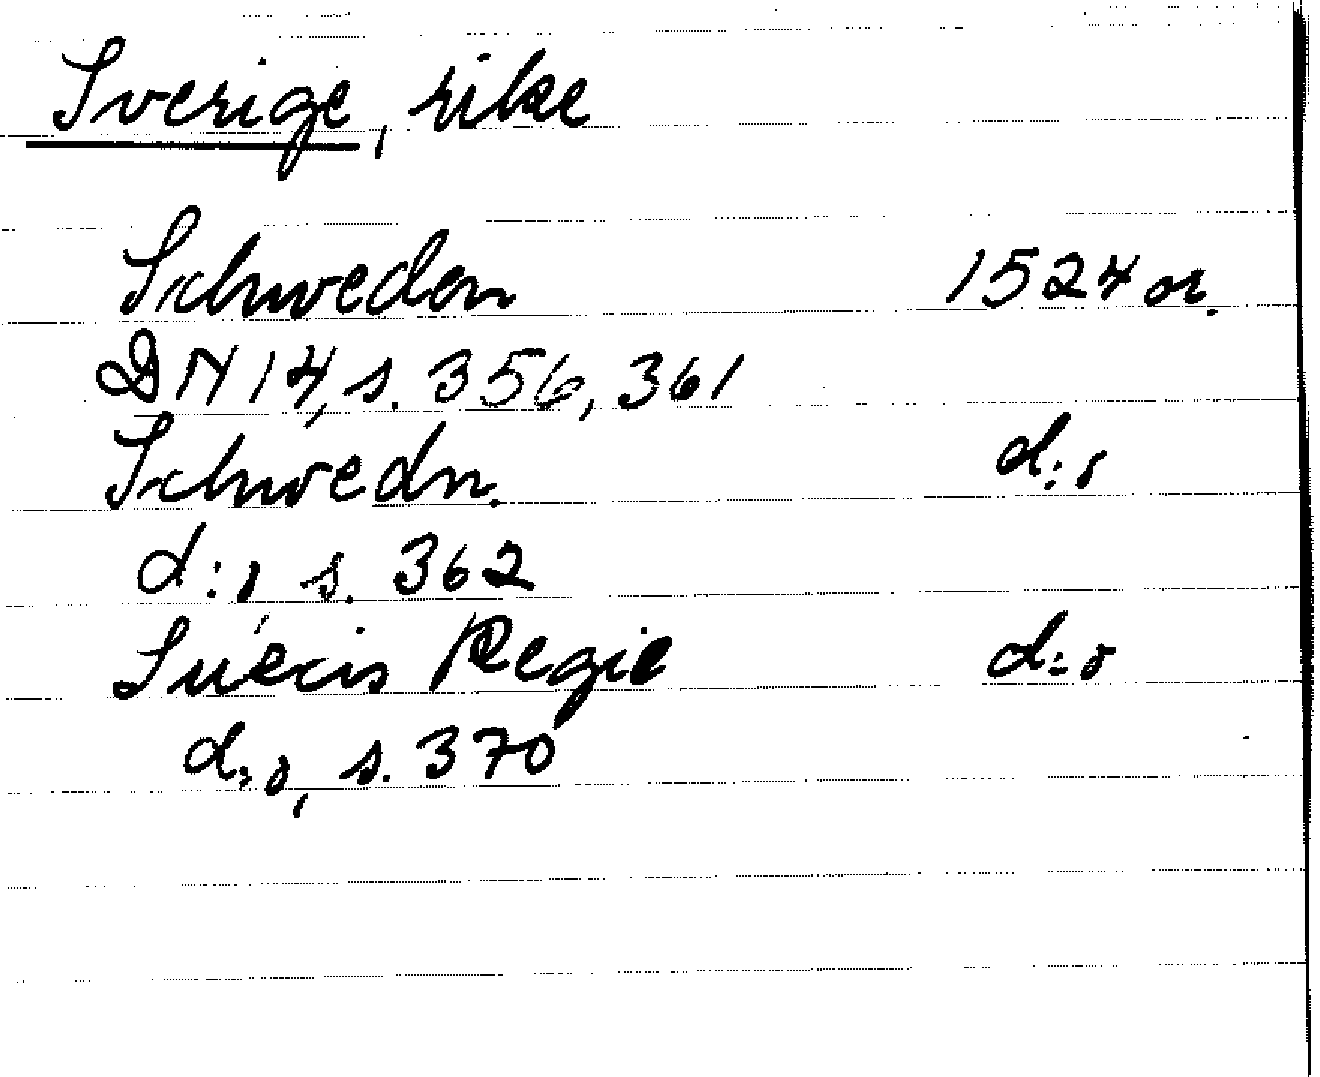 Sverige, rike
Schweden 1524 or.
DN 14, s. 356, 361
Schwedn. d:o
d:o, s. 362
Suecis Regie d:o
d:o, s. 370